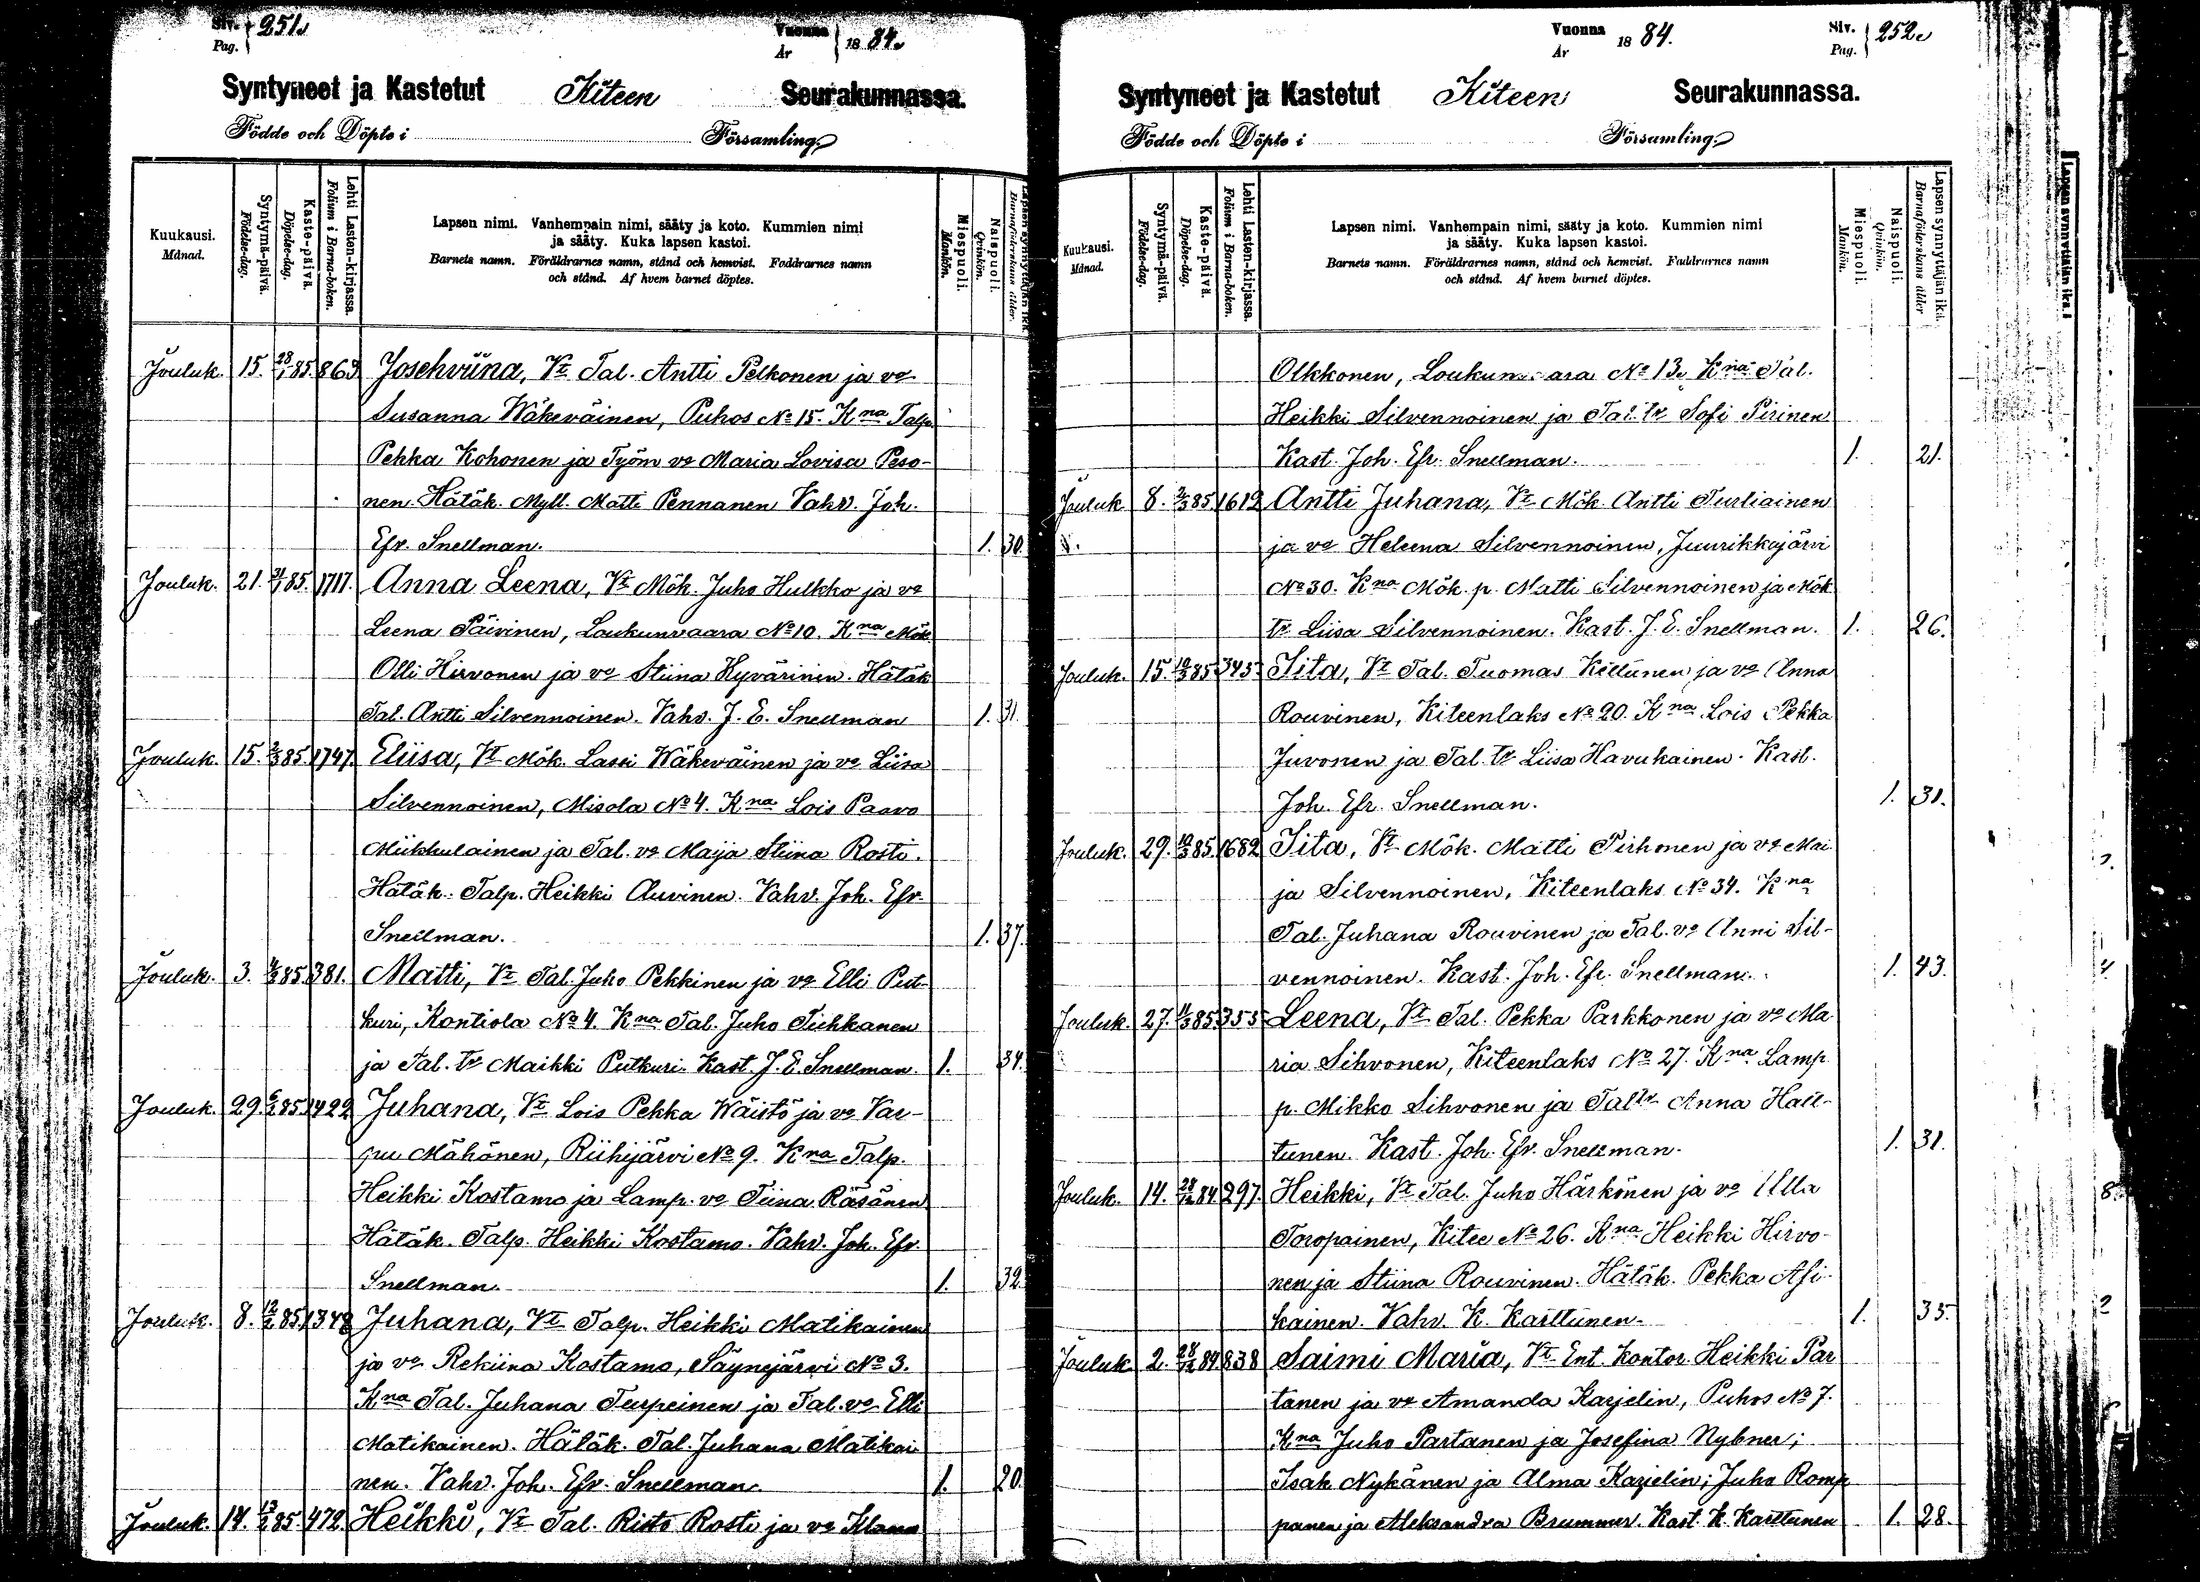 Siv. Pag. 251.
Vuonna År 1884.
Syntyneet ja Kastetut Kiteen Seurakunnassa.
Födde och Döpte i Församling.
Kuukausi. Månad.
Syntymä-päivä. Födelse-dag.
Kaste-päivä. Döpelse-dag.
Lehti Lasten-kirjassa. Folium i Barna-boken.
Lapsen nimi. Vanhempain nimi, sääty ja koto. Kummien nimi
ja sääty. Kuka lapsen kastoi.
Barnets namn. Föräldrarnes namn, stånd och hemvist. Faddrarnes namn
och stånd. Af hvem barnet döptes.
Miespuoli. Mankön.
Naispuoli. Qvinkön.
Lapsen synnyttäjän ikä. Barnaföderskans ålder.
Jouluk. 15. 28/1 85. 863 Josehviina, Vt Tal. Antti Pelkonen ja vo
Susanna Wäkeväinen, Puhos No 15. Kna Talp.
Pekka Kohonen ja Työm vo Maria Lovisa Peso-
nen. Hätäk. Myll. Matti Pennanen Vahv. Joh.
Efr. Snellman. 1. 30.
Jouluk. 21. 31/1 85. 1717. Anna Leena, Vt Mök. Juho Hulkko ja vo
Leena Päivinen, Loukunvaara No 10. Kna Mök.
Olli Hirvonen ja vo Stiina Hyvärinen. Hätäk
Tal. Antti Silvennoinen. Vahv. J. E. Snellman 1. 31.
Jouluk. 15. 2/3 85. 1747. Eliisa, Vt Mök. Lassi Wäkeväinen ja vo Liisa
Silvennoinen, Misola No 4. Kna Lois Paavo
Miikkulainen ja Tal. vo Maija Stiina Rosti.
Hätäk. Talp. Heikki Auvinen. Vahv. Joh. Efr.
Snellman. 1. 37.
Jouluk. 3. 85. 381. Matti, Vt Tal. Juho Pekkinen ja vo Elli Put-
kuri, Kontiola No 4. Kna Tal. Juho Tiihkanen
ja Tal. tr Maikki Putkuri. Kast. J. E. Snellman. 1. 34.
Jouluk. 29. 85. 1422 Juhana, Vt Lois Pekka Wäistö ja vo Var-
pu Mähönen, Riihijärvi No 9. Kna Talp.
Heikki Kostamo ja Lamp. vo Tiina Räsänen
Hätäk. Talp. Heikki Kostamo. Vahv. Joh. Efr.
Snellman. 1. 32.
Jouluk. 8. 12/2 85. 1348 Juhana, Vt Talp. Heikki Matikainen
ja vo Rekiina Kostamo, Säynejärvi No 3.
Kna Tal. Juhana Turpeinen ja Tal. vo Elli
Matikainen. Hätäk. Tal. Juhana Matikai-
nen. Vahv. Joh. Efr. Snellman. 1. 20.
Jouluk. 14. 13/2 85. 472. Heikki, Vt Tal. Risto Rosti ja vo
Vuonna År 1884.
Siv. Pag. 252.
Syntyneet ja Kastetut Kiteen Seurakunnassa.
Födde och Döpte i Församling.
Kuukausi. Månad.
Syntymä-päivä. Födelse-dag.
Kaste-päivä. Döpelse-dag.
Lehti Lasten-kirjassa. Folium i Barna-boken.
Lapsen nimi. Vanhempain nimi, sääty ja koto. Kummien nimi
ja sääty. Kuka lapsen kastoi.
Barnets namn. Föräldrarnes namn, stånd och hemvist. Faddrarnes namn
och stånd. Af hvem barnet döptes.
Miespuoli. Mankön.
Naispuoli. Qvinkön.
Lapsen synnyttäjän ikä. Barnaföderskans ålder
Lapsen synnyttäjän ikä.
Olkkonen, Loukunvaara No 13. Kna Tal.
Heikki Silvennoinen ja Tal. tr Sofi Pirinen
Kast. Joh. Efr. Snellman. 1. 21.
Jouluk 8. 2/3 85. 1612 Antti Juhana, Vt Mök. Antti Turtiainen
ja vo Heleena Silvennoinen, Juurikkajärvi
No 30. Kna Mök. p. Matti Silvennoinen ja Mök
tr. Liisa Silvennoinen. Kast. J. E. Snellman. 1. 26.
Jouluk. 15. 10/3 85. 345 Iita, Vt Tal. Tuomas Kettunen ja vo Anna
Rouvinen, Kiteenlaks No 20. Kna Lois Pekka
Juvonen ja Tal. tr Liisa Havukainen. Kast.
Joh. Efr. Snellman. 1. 31.
Jouluk. 29. 10/3 85. 1682 Iita, Vt Mök. Matti Pirhonen ja vo Mai-
ja Silvennoinen, Kiteenlaks No 34. Kna
Tal. Juhana Rouvinen ja Tal. vo Anni Sil-
vennoinen. Kast. Joh. Efr. Snellman. 1. 43.
Jouluk. 27. 11/3 85. 355 Leena, Vt Tal. Pekka Parkkonen ja vo Ma-
ria Sihvonen, Kiteenlaks No 27. Kna Lamp.
p. Mikko Sihvonen ja Tal tr Anna Hatt-
tunen. Kast. Joh. Efr. Snellman. 1. 31.
Jouluk. 14. 28/12 84. 297 Heikki, Vt Tal. Juho Härkönen ja vo Ulla
Toropainen, Kitee No 26. Kna Heikki Hirvo-
nen ja Stiina Rouvinen. Hätäk. Pekka Asi-
kainen. Vahv. K. Karttunen. 1. 35.
Jouluk. 2. 28/12 84. 838 Saimi Maria, Vt Ent. Kontor. Heikki Par-
tanen ja vo Amanda Karjelin, Puhos No 7.
Kna Juho Partanen ja Josefina Nybner;
Isak Nykänen ja Alma Karjelin; Juho Romp-
panen ja Aleksandra Brummer. Kast. K. Karttunen 1. 28.